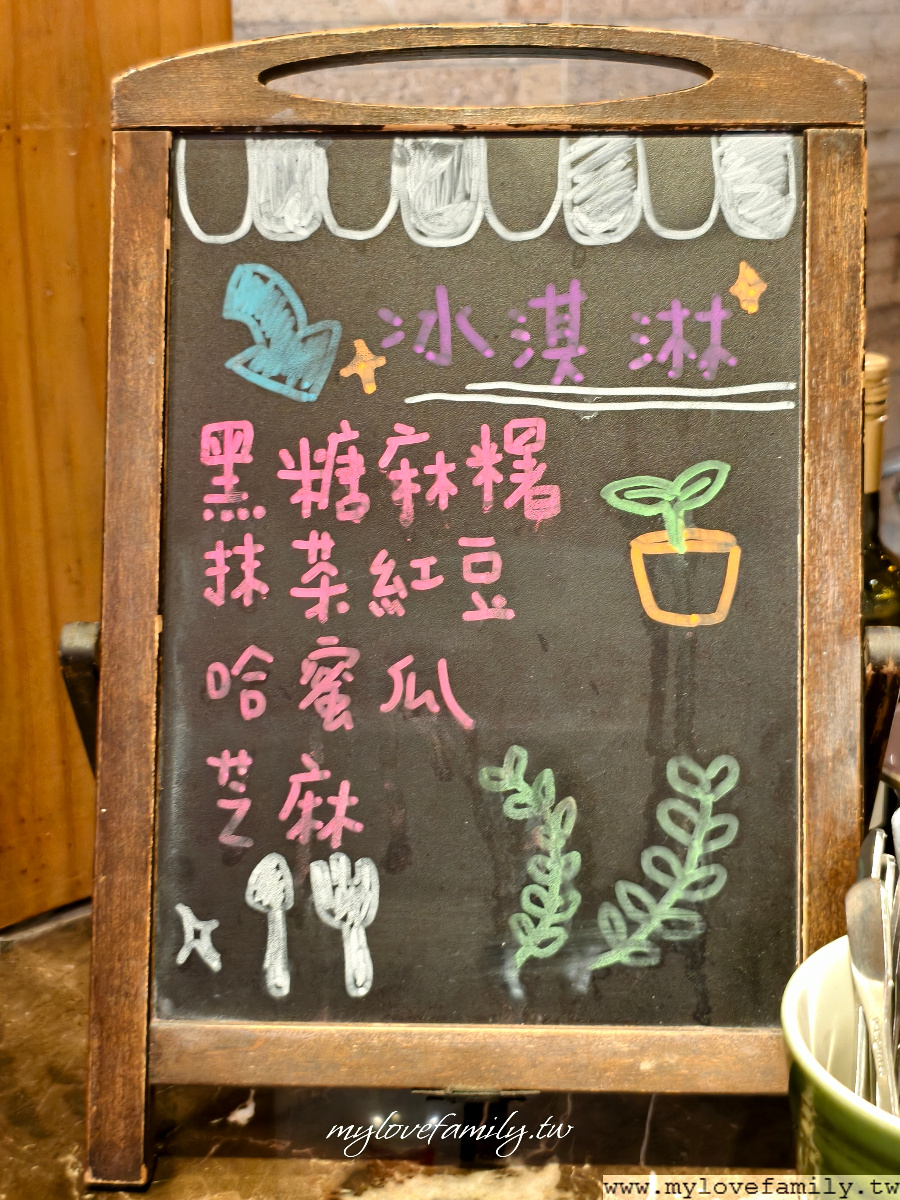 冰淇淋
黑糖麻糬
抹茶紅豆
哈蜜瓜
芝麻
mylovefamily.tw
www.mylovefamily.tw